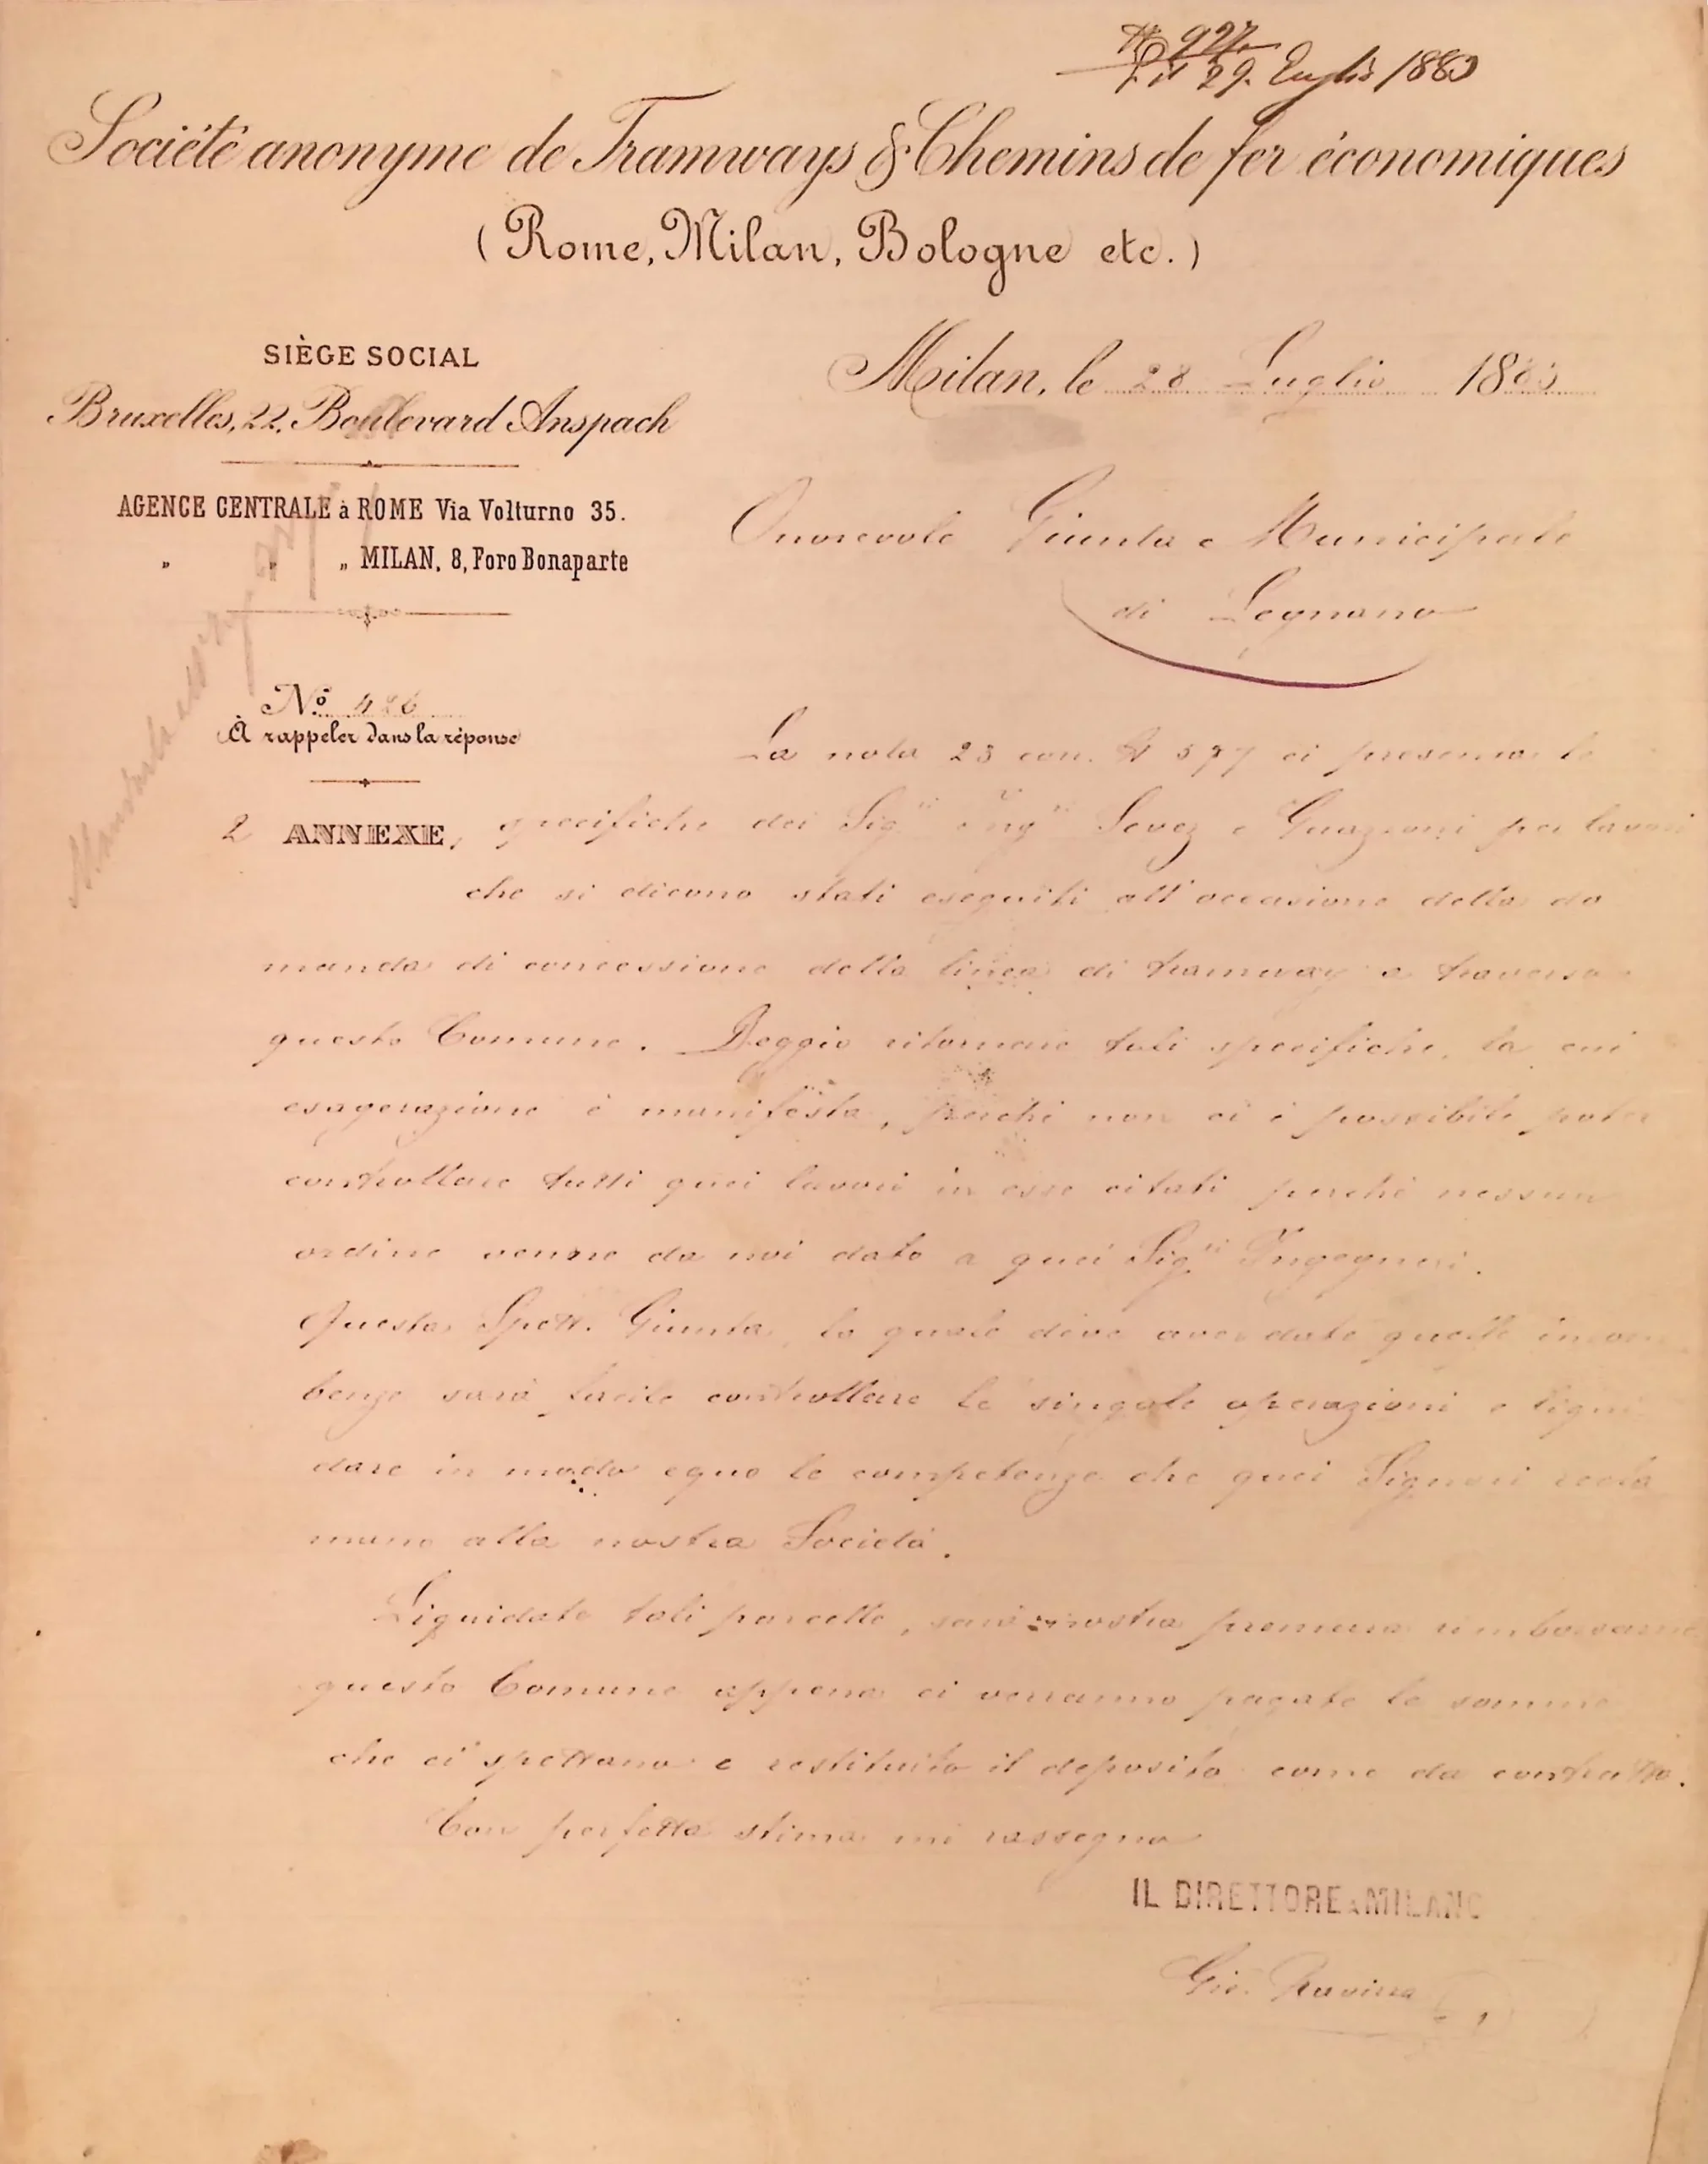 29. Luglio 1883
Société anonyme de Tramways & Chemins de fer économiques
(Rome, Milan, Bologne etc.)
SIÈGE SOCIAL
Bruxelles, 22, Boulevard Anspach
AGENCE CENTRALE à ROME Via Volturno 35.
" " „ MILAN, 8, Foro Bonaparte
Nº 426
À rappeler dans la réponse
2 ANNEXE,
Milan, le 28 Luglio 1883
Onorevole Giunta Municipale
di Legnano
La nota 23 con. N 597 ci presenta le
specifiche dei Sig.ri Ing.ri e Guazzoni per lavori
che si dicono stati eseguiti all'occasione della do
manda di concessione della linea di tramway a traverso
questo Comune. Deggio ritornare tali specifiche, la cui
esagerazione è manifesta, perchè non ci è possibile poter
controllare tutti quei lavori in esse citati perchè nessun
ordine venne da noi dato a quei Sig.ri Ingegneri.
Questa Spett. Giunta, la quale deve aver dato quelle incom
benze sarà facile controllare le singole operazioni e liqui
dare in modo equo le competenze che quei Signori recla
mano alla nostra Società.
Liquidate tali parcelle, sarà nostra premura rimborsarne
questo Comune appena ci verranno pagate le somme
che ci spettano e restituito il deposito come da contratto.
Con perfetta stima mi rassegno
IL DIRETTORE A MILANO